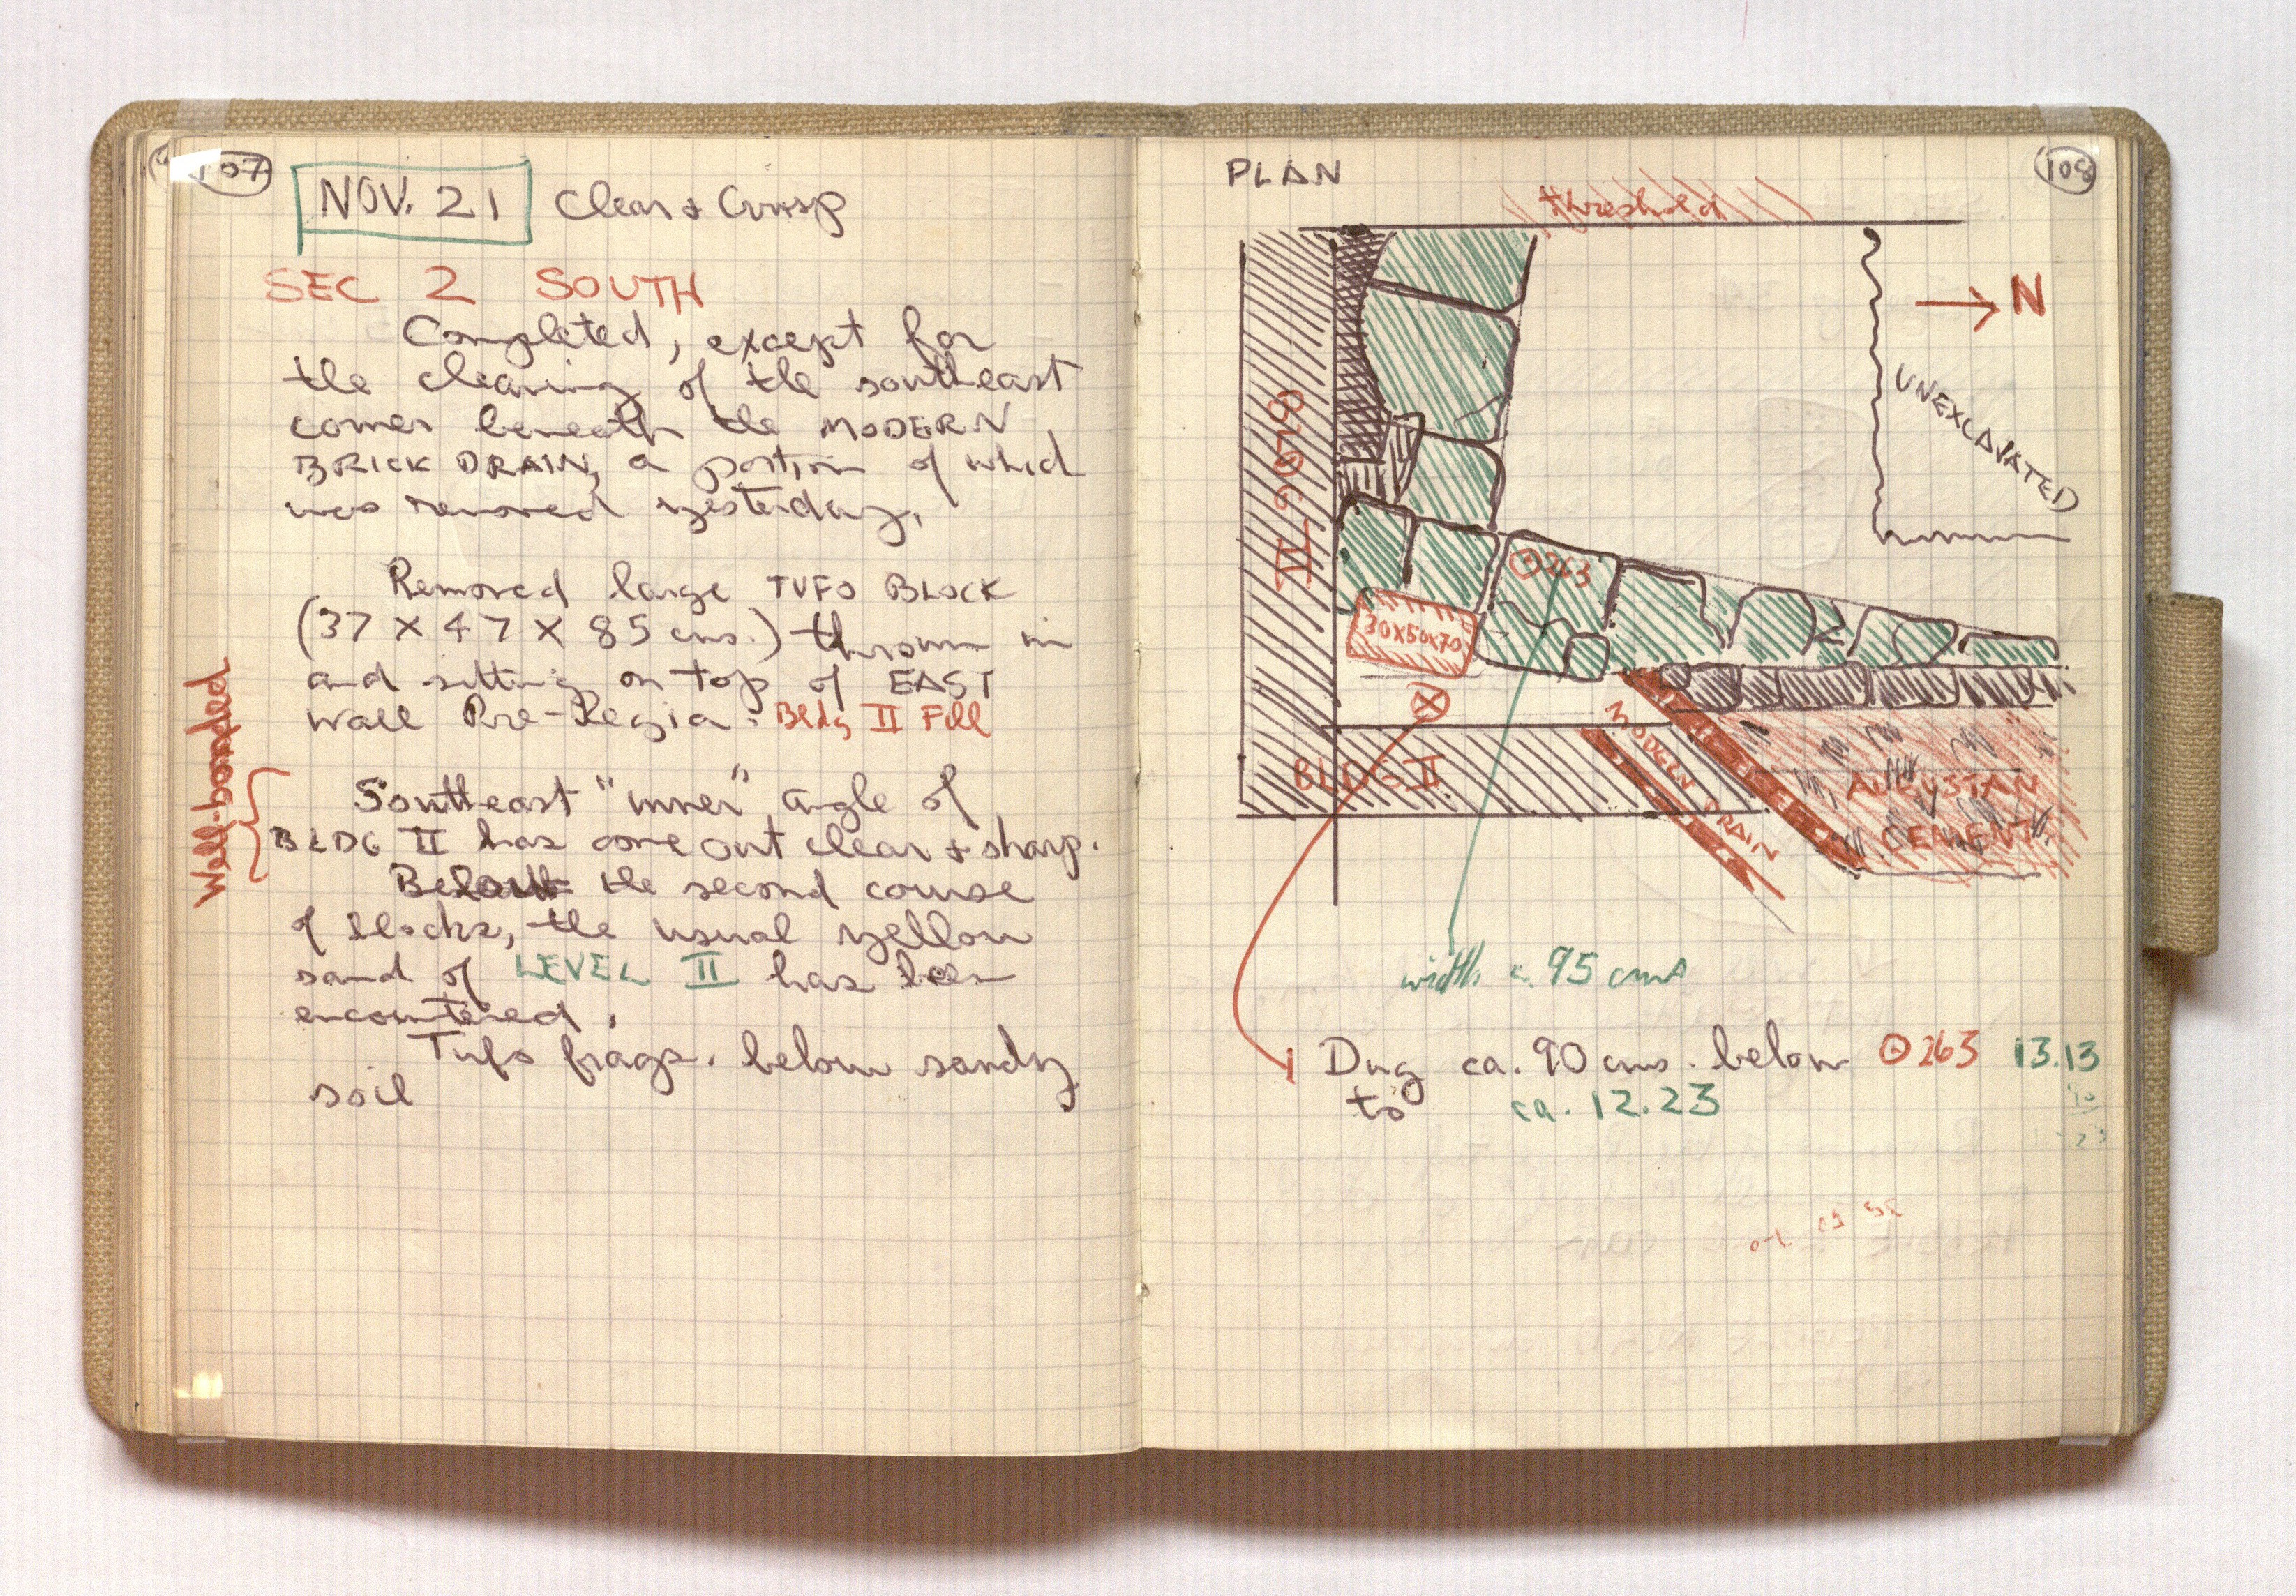 107
NOV. 21 Clear & Crisp
SEC 2 SOUTH
Completed, except for
the clearing of the southeast
corner beneath the MODERN
BRICK DRAIN, a portion of which
was removed yesterday.
Removed large TUFO BLOCK
(37 X 47 X 85 cms.) thrown in
and sitting on top of EAST
wall Pre-Regia. Bldg II Fill
Well-bonded
Southeast "inner" angle of
BLDG II has come out clear & sharp.
Below the second course
of blocks, the usual yellow
sand of LEVEL II has been
encountered.
Tufo frags. below sandy
soil
108
PLAN
threshold
N
UNEXCAVATED
BLDG II
263
30X50X70
BLDG II
MODERN DRAIN
AUGUSTAN
CEMENT
width c. 95 cms
Dug ca. 90 cms. below 263 13.13
to ca. 12.23